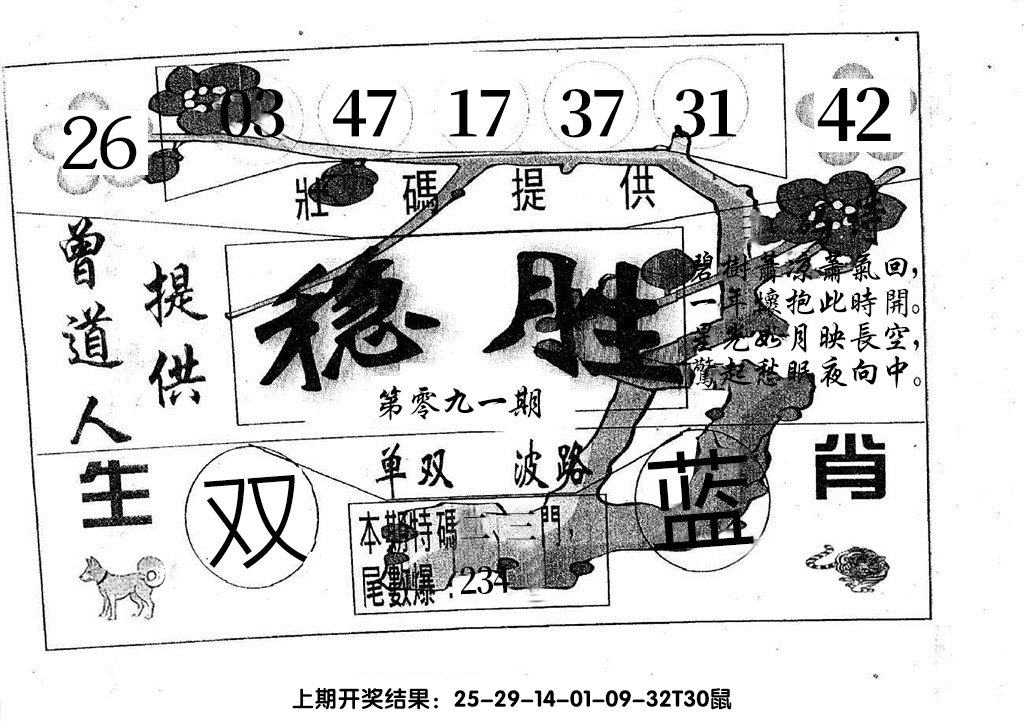 26 03 47 17 37 31 42
壯碼提供
特
曾道人
提供
稳胜
第零九一期
碧樹蕭涼蕭氣回，
一年懷抱此時開。
星光如月映長空，
驚起愁眠夜向中。
单双 波路
生肖
双
蓝
本期特碼二、三門，
尾數爆：234
上期开奖结果：25-29-14-01-09-32T30鼠